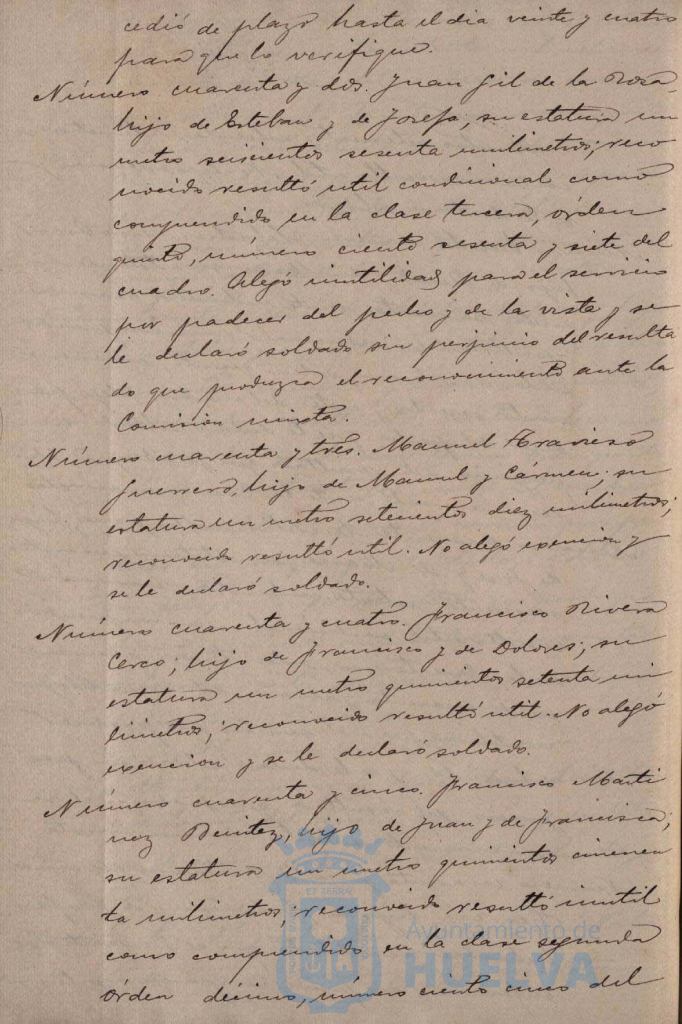 cedió de plazo hasta el dia veinte y cuatro
para que lo verifique.
Número cuarenta y dos. Juan Gil de la Rosa,
hijo de Esteban y de Josefa; su estatura un
metro seiscientos sesenta milimetros; reco
nocido resultó util condicional como
comprendido en la clase tercera, órden
quinto, número ciento sesenta y siete del
cuadro. Alegó inutilidad para el servicio
por padecer del pecho y de la vista y se
le declaró soldado sin perjuicio del resulta
do que produzca el reconocimiento ante la
Comision mixta.
Número cuarenta y tres. Manuel Travieso
Guerrero, hijo de Manuel y Cármen; su
estatura un metro setecientos diez milimetros;
reconocido resultó util. No alegó exencion y
se le declaró soldado.
Número cuarenta y cuatro. Francisco Rivera
Cerco; hijo de Francisco y de Dolores; su
estatura un metro quinientos setenta mi
límetros; reconocido resultó util. No alegó
exencion y se le declaró soldado.
Número cuarenta y cinco. Francisco Marti
nez Benitez, hijo de Juan y de Francisca;
su estatura un metro quinientos cincuen
ta milimetros; reconocido resultó inutil
como comprendido en la clase segunda
órden décimo, número ciento cinco del
Ayuntamiento de
HUELVA